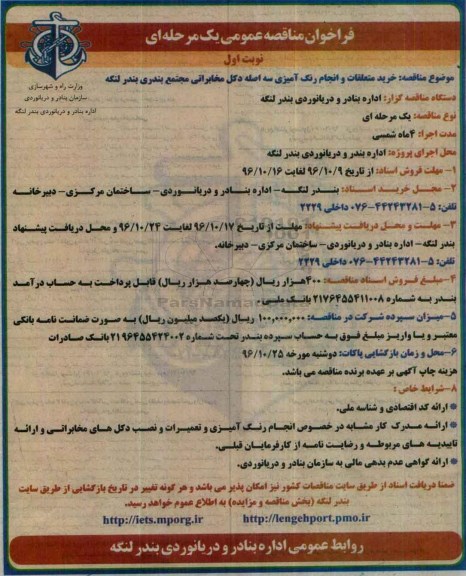 فراخوان مناقصه عمومی یک مرحله‌ای
نوبت اول
وزارت راه و شهرسازی
سازمان بنادر و دریانوردی
اداره بنادر و دریانوردی بندر لنگه
موضوع مناقصه: خرید متعلقات و انجام رنگ آمیزی سه اصله دکل مخابراتی مجتمع بندری بندر لنگه
دستگاه مناقصه گزار: اداره بنادر و دریانوردی بندر لنگه
نوع مناقصه: یک مرحله ای
مدت اجرا: ۴ماه شمسی
محل اجرای پروژه: اداره بندر و دریانوردی بندر لنگه
۱- مهلت فروش اسناد: از تاریخ ۹۶/۱۰/۹ لغایت ۹۶/۱۰/۱۶
۲- محل خرید اسناد: بندر لنگه- اداره بنادر و دریانوردی- ساختمان مرکزی- دبیرخانه
تلفن: ۵-۴۴۲۴۳۲۸۱-۰۷۶ داخلی ۲۲۲۹
۳- مهلت و محل دریافت پیشنهاد: مهلت از تاریخ ۹۶/۱۰/۱۷ لغایت ۹۶/۱۰/۲۴ و محل دریافت پیشنهاد
بندر لنگه- اداره بنادر و دریانوردی- ساختمان مرکزی- دبیرخانه.
تلفن: ۵-۴۴۲۴۳۲۸۱-۰۷۶ داخلی ۲۲۲۹
۴-مبلغ فروش اسناد مناقصه: ۴۰۰هزار ریال (چهارصد هزار ریال) قابل پرداخت به حساب درآمد
بندر به شماره ۲۱۷۶۴۵۵۴۱۱۰۰۸ بانک ملی.
۵-میزان سپرده شرکت در مناقصه: ۱۰۰,۰۰۰,۰۰۰ ریال (یکصد میلیون ریال) به صورت ضمانت نامه بانکی
معتبر و یا واریز مبلغ فوق به حساب سپرده بندر تحت شماره ۲۱۹۶۴۵۵۴۲۴۰۰۲ بانک صادرات
۶-محل و زمان بازگشایی پاکات: دوشنبه مورخه ۹۶/۱۰/۲۵
هزینه چاپ آگهی بر عهده برنده مناقصه می باشد.
۸-شرایط خاص :
● ارائه کد اقتصادی و شناسه ملی.
● ارائه مدرک کار مشابه در خصوص انجام رنگ آمیزی و تعمیرات و نصب دکل های مخابراتی و ارائه
تاییدیه های مربوطه و رضایت نامه از کارفرمایان قبلی.
● ارائه گواهی عدم بدهی مالی به سازمان بنادر و دریانوردی.
ضمنا دریافت اسناد از طریق سایت مناقصات کشور نیز امکان پذیر می باشد و هر گونه تغییر در تاریخ بازگشایی از طریق سایت
بندر لنگه (بخش مناقصه و مزایده) به اطلاع عموم خواهد رسید.
http://iets.mporg.ir http://lengehport.pmo.ir
روابط عمومی اداره بنادر و دریانوردی بندر لنگه